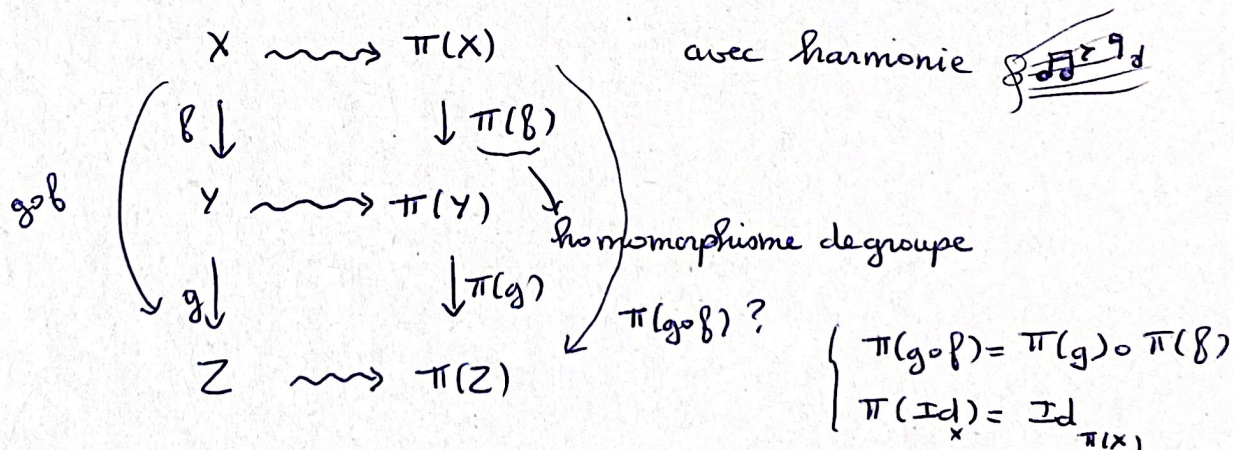 X ⇝ π(X) avec harmonie
f ↓ ↓ π(f)
gof Y ⇝ π(Y)
homomorphisme de groupe
g ↓ ↓ π(g)
π(gof) ?
Z ⇝ π(Z)
{ π(gof) = π(g) o π(f)
π(Id_X) = Id_π(X)